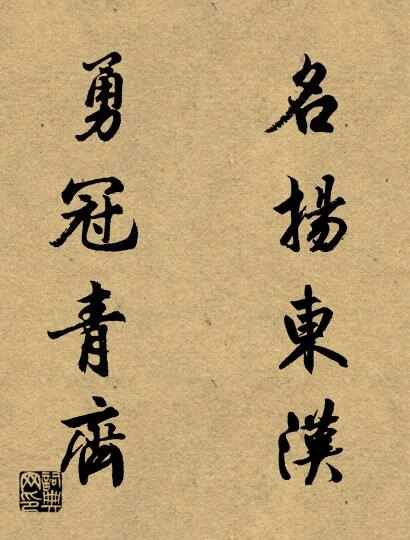 名揚東漢
勇冠青齊
詞典網印